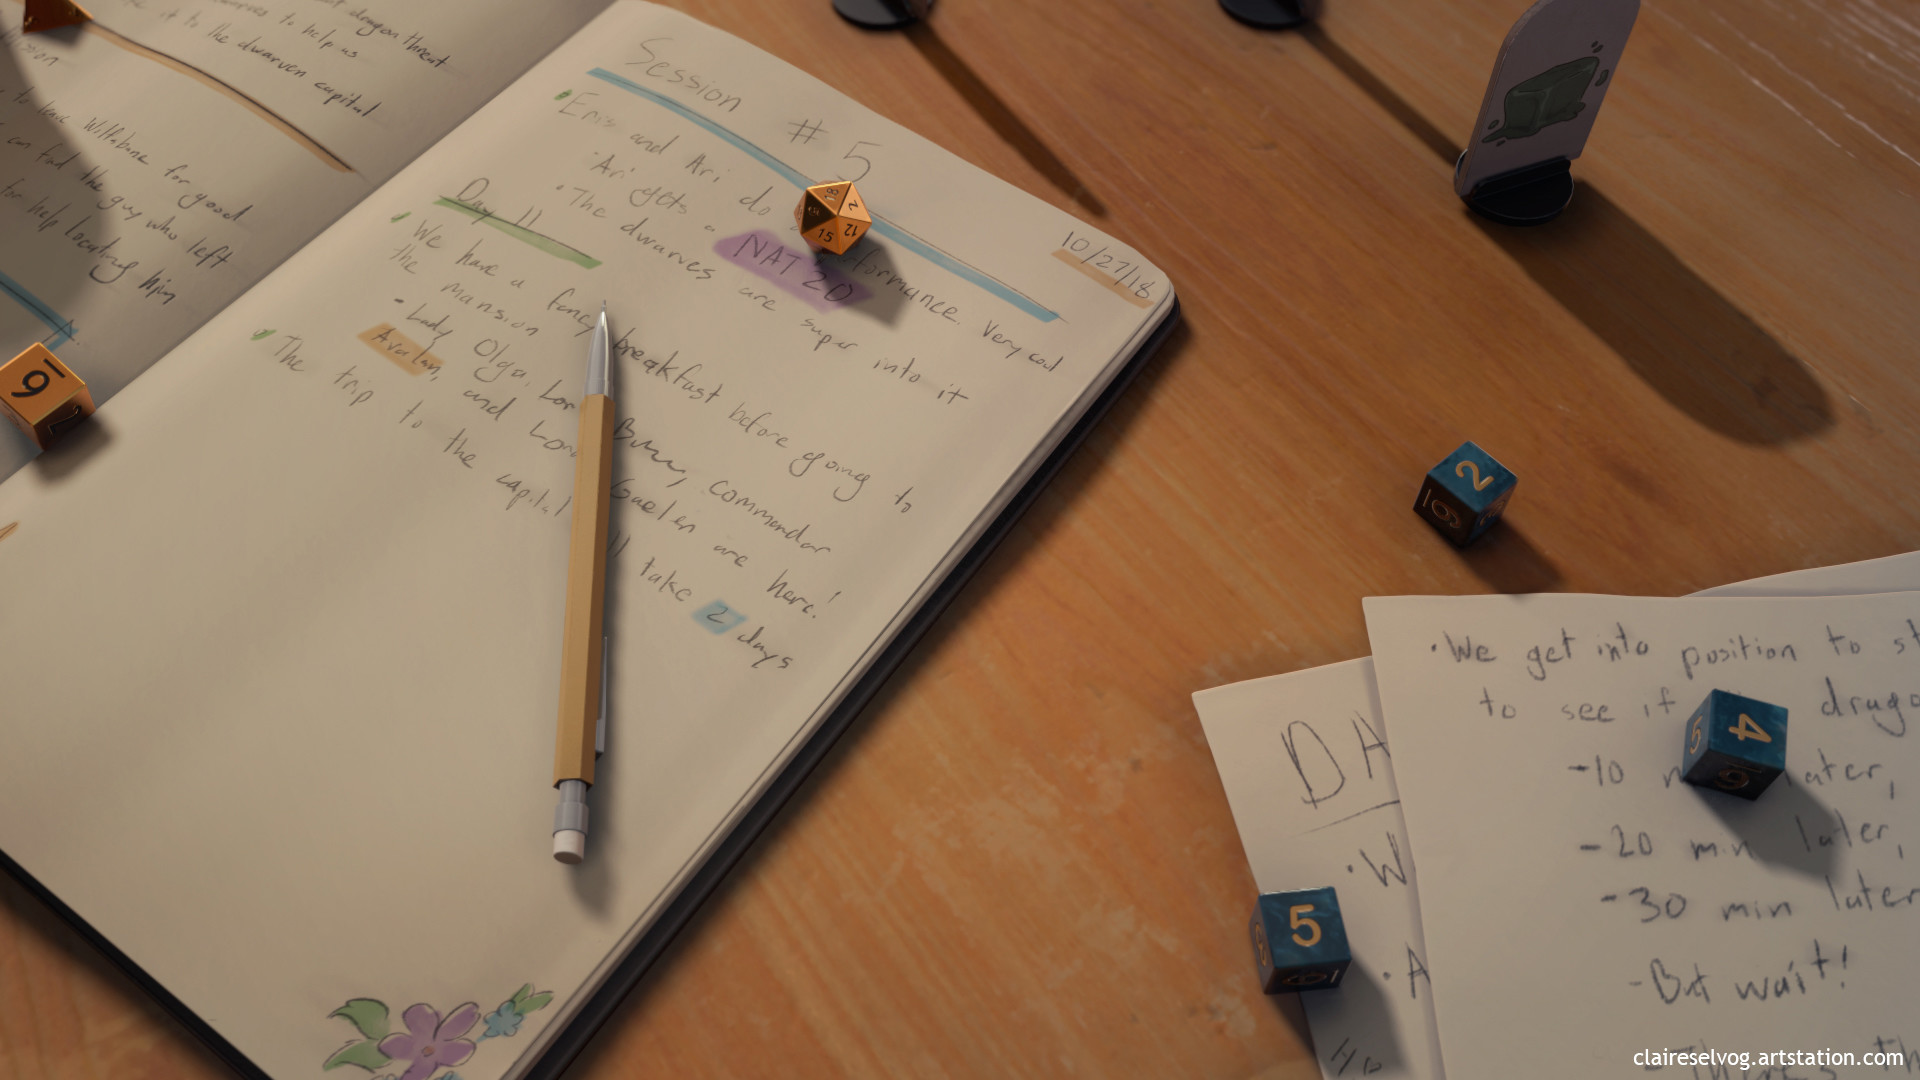 dragon threat
to help us
it to the dwarven capital
to leave Wiltabane for good
can find the guy who left
for help locating him
Session #5
10/27/18
Eris and Ari do a performance. Very cool
Ari gets a NAT 20
The dwarves are super into it
Day 11
We have a fancy breakfast before going to
the mansion
- Lady Olga, Lord Bunny, commander
Avalan, and Lord Gaelen are here!
The trip to the capital 'll take 2 days
8
2
12
15
9
2
6
4
5
6
5
6
•We get into position to st
to see if drago
-10 m ater,
-20 min later,
-30 min later
-But wait!
- There's th
DA
•W
•A
claireselvog.artstation.com